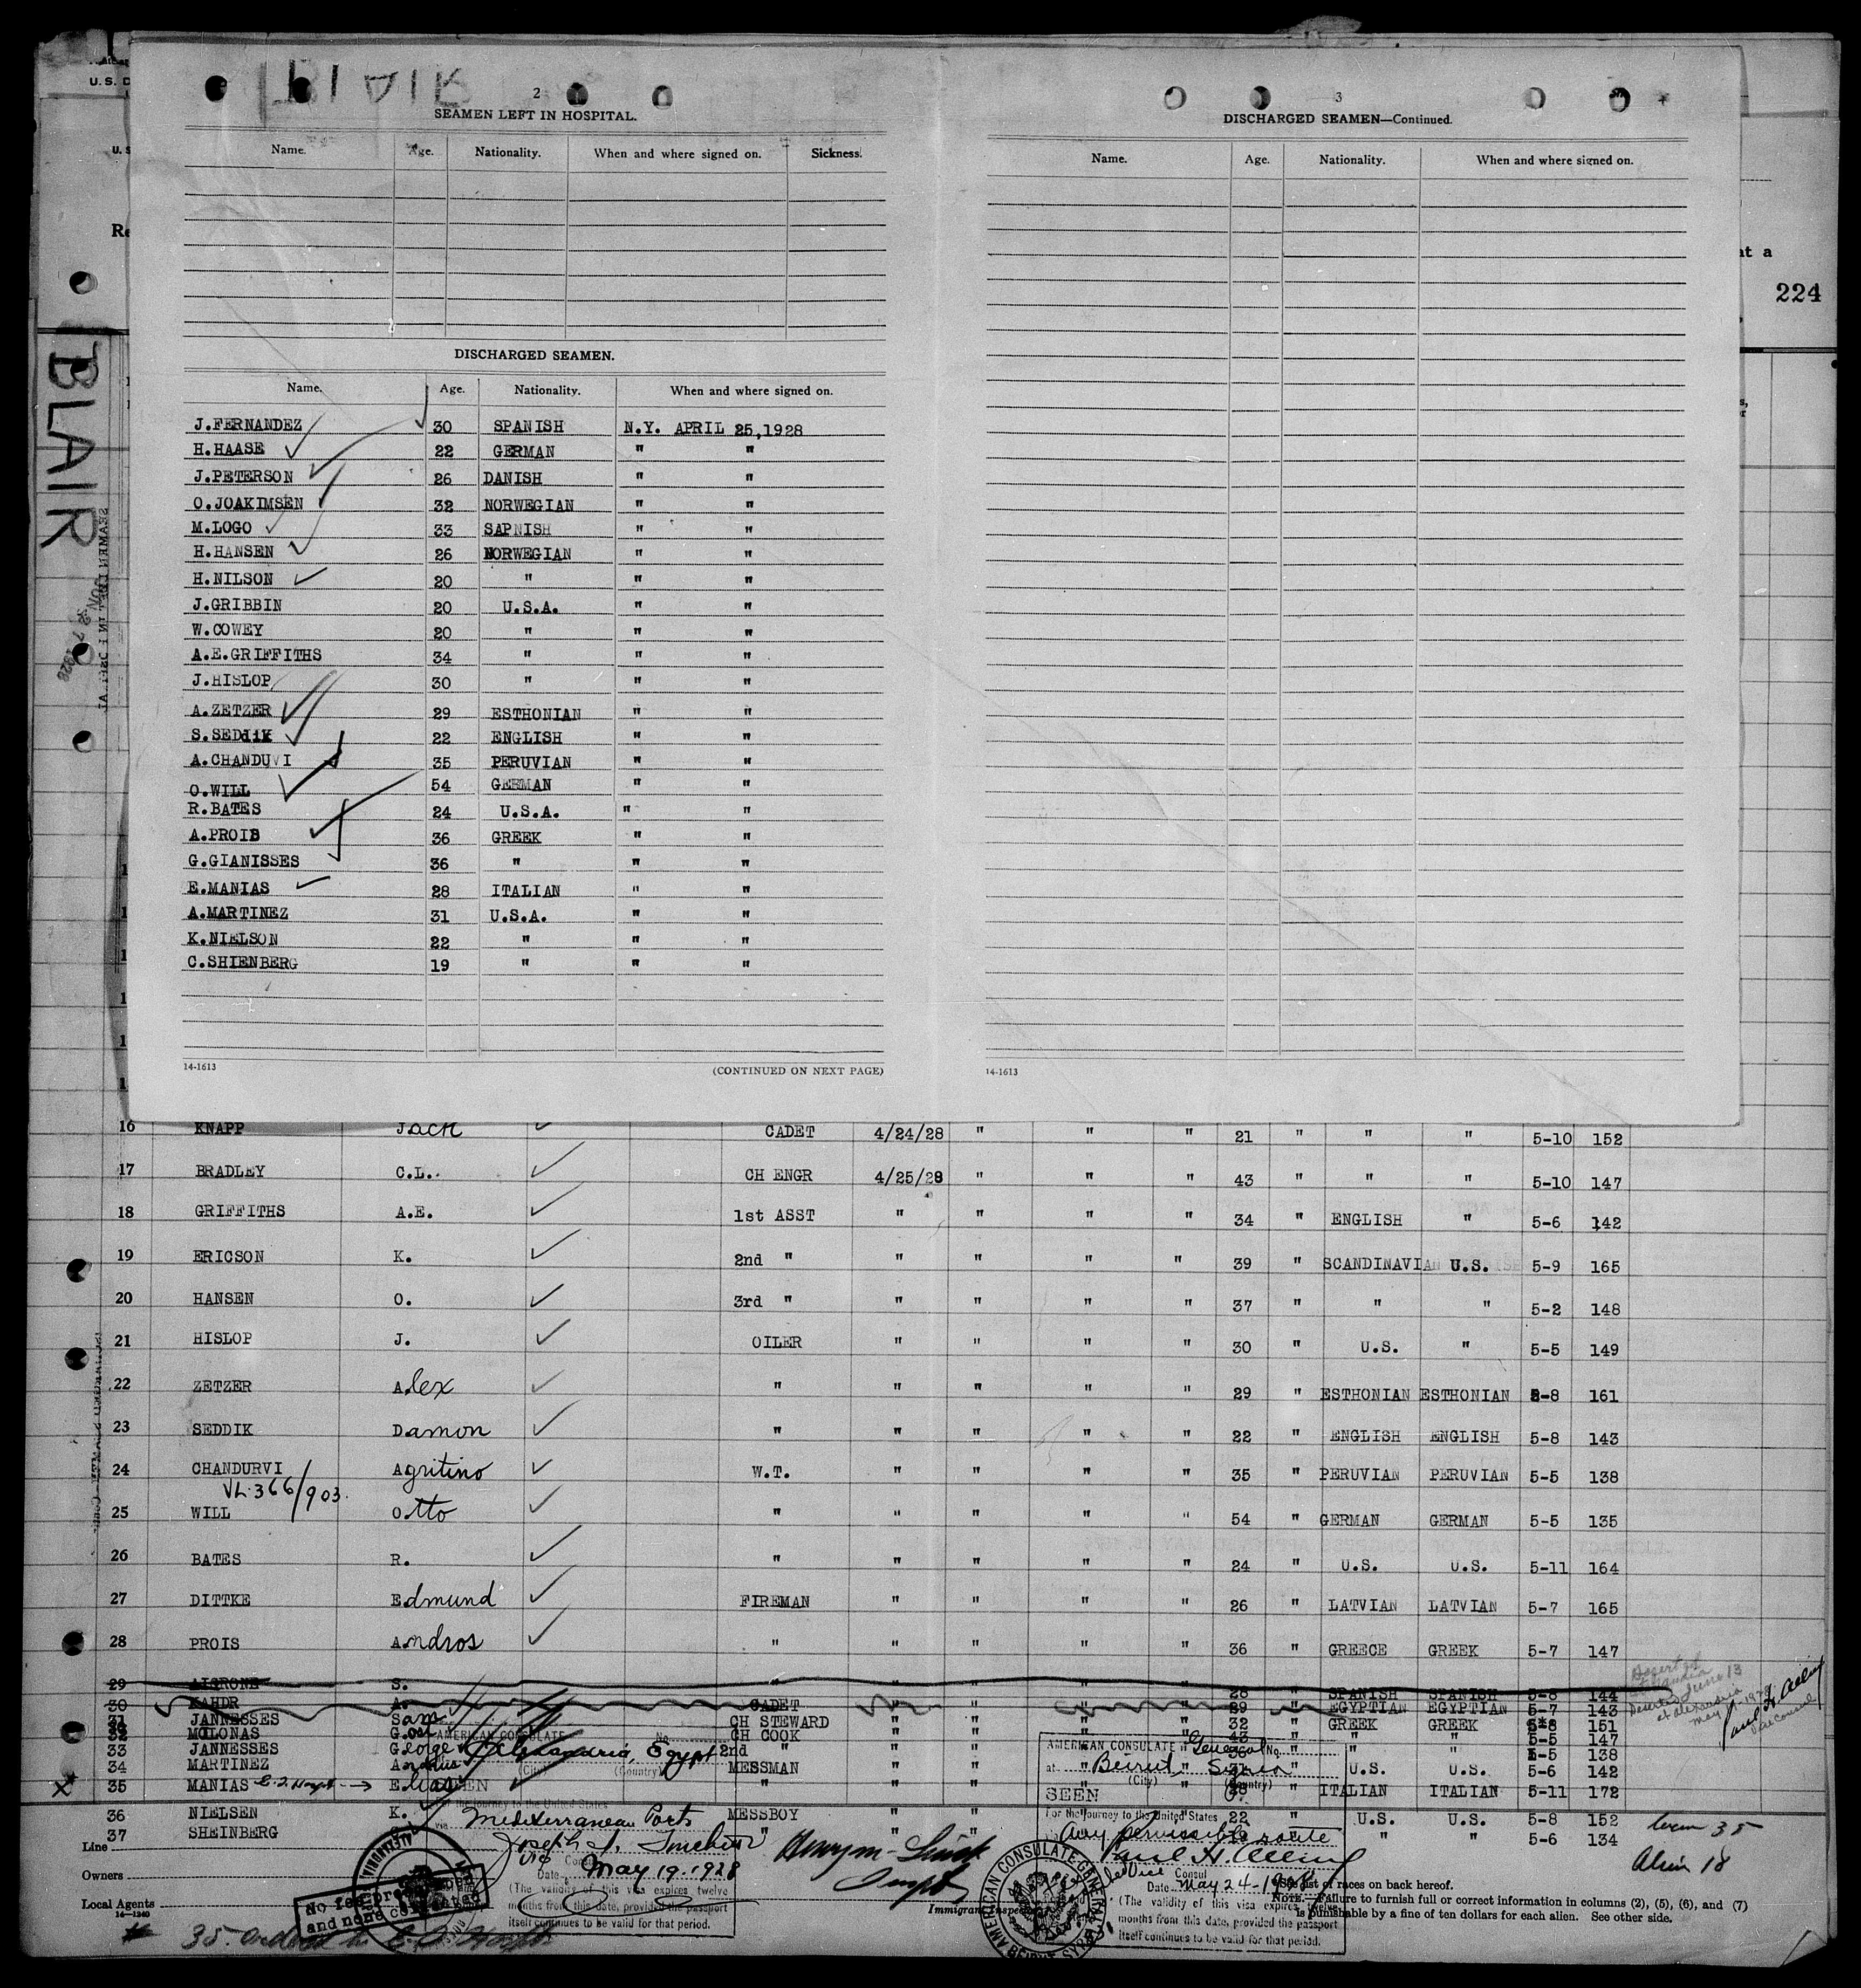 U.S. D
BLAIR
2
SEAMEN LEFT IN HOSPITAL.
Name. Age. Nationality. When and where signed on. Sickness.
DISCHARGED SEAMEN.
Name. Age. Nationality. When and where signed on.
J.FERNANDEZ 30 SPANISH N.Y. APRIL 25,1928
H.HAASE 22 GERMAN " "
J.PETERSON 26 DANISH " "
O.JOAKIMSEN 32 NORWEGIAN " "
M.LOGO 33 SAPNISH " "
H.HANSEN 26 NORWEGIAN " "
H.NILSON 20 " " "
J.GRIBBIN 20 U.S.A. " "
W.COWEY 20 " " "
A.E.GRIFFITHS 34 " " "
J.HISLOP 30 " " "
A.ZETZER 29 ESTHONIAN " "
S.SEDdiK 22 ENGLISH " "
A.CHANDUVI 35 PERUVIAN " "
O.WILL 54 GERMAN " "
R.BATES 24 U.S.A. " "
A.PROIS 36 GREEK " "
G.GIANISSES 36 " " "
E.MANIAS 28 ITALIAN " "
A.MARTINEZ 31 U.S.A. " "
K.NIELSON 22 " " "
C.SHIENBERG 19 " " "
14-1613 (CONTINUED ON NEXT PAGE)
3
DISCHARGED SEAMEN—Continued.
Name. Age. Nationality. When and where signed on.
14-1613
at a
224
BLAIR
16 KNAPP Jack CADET 4/24/28 " " " 21 " " " 5-10 152
17 BRADLEY C.L. CH ENGR 4/25/28 " " " 43 " " " 5-10 147
18 GRIFFITHS A.E. 1st ASST " " " " 34 " ENGLISH " 5-6 142
19 ERICSON K. 2nd " " " " " 39 " SCANDINAVIAN U.S. 5-9 165
20 HANSEN O. 3rd " " " " " 37 " " " 5-2 148
21 HISLOP J. OILER " " " " 30 " U.S. " 5-5 149
22 ZETZER Alex " " " " " 29 " ESTHONIAN ESTHONIAN 5-8 161
23 SEDDIK Damon " " " " " 22 " ENGLISH ENGLISH 5-8 143
24 CHANDURVI Agritino W.T. " " " " 35 " PERUVIAN PERUVIAN 5-5 138
VL-366/903.
25 WILL Otto " " " " " 54 " GERMAN GERMAN 5-5 135
26 BATES R. " " " " " 24 " U.S. U.S. 5-11 164
27 DITTKE Edmund FIREMAN " " " " 26 " LATVIAN LATVIAN 5-7 165
28 PROIS Andros " " " " " 36 " GREECE GREEK 5-7 147
29 AIGRONE S. 28 " SPANISH SPANISH 5-8 144
30 KAHDR A. CADET " " " " 29 " EGYPTIAN EGYPTIAN 5-7 143
31 JANNESSES Sam CH STEWARD " " " " 32 " GREEK GREEK 5-8 151
32 MOLONAS G. CH COOK " " " " 43 " " " 5-5 147
33 JANNESSES George 2nd " " " 36 " " " 5-5 138
34 MARTINEZ MESSMAN " " " U.S. U.S. 5-6 142
X 35 MANIAS Elias " " " " 28 " ITALIAN ITALIAN 5-11 172
36 NIELSEN K. MESSBOY " " 22 " U.S. U.S. 5-8 152
37 SHEINBERG " " " " " " 5-6 134
35
Alien 18
AMERICAN CONSULATE No.
at Alexandria, Egypt
(City) (Country)
SEEN
For the journey to the United States
via Mediterranean Ports
Consul
Date May 19-1928
(The validity of this visa expires twelve
months from this date, provided the passport
itself continues to be valid for that period.
AMERICAN CONSULATE General No.
at Beirut, Syria
(City) (Country)
SEEN
For the journey to the United States
Any permissible route
Paul H. Alling
Vice Consul
Date May 24-1928
(The validity of this visa expires twelve
months from this date, provided the passport
itself continues to be valid for that period.
AMERICAN CONSULATE GENERAL BEIRUT SYRIA
Line
Owners
Local Agents
14-1240
No fee prescribed
and none collected
Immigrant Inspector
See list of races on back hereof.
NOTE.—Failure to furnish full or correct information in columns (2), (5), (6), and (7)
is punishable by a fine of ten dollars for each alien. See other side.